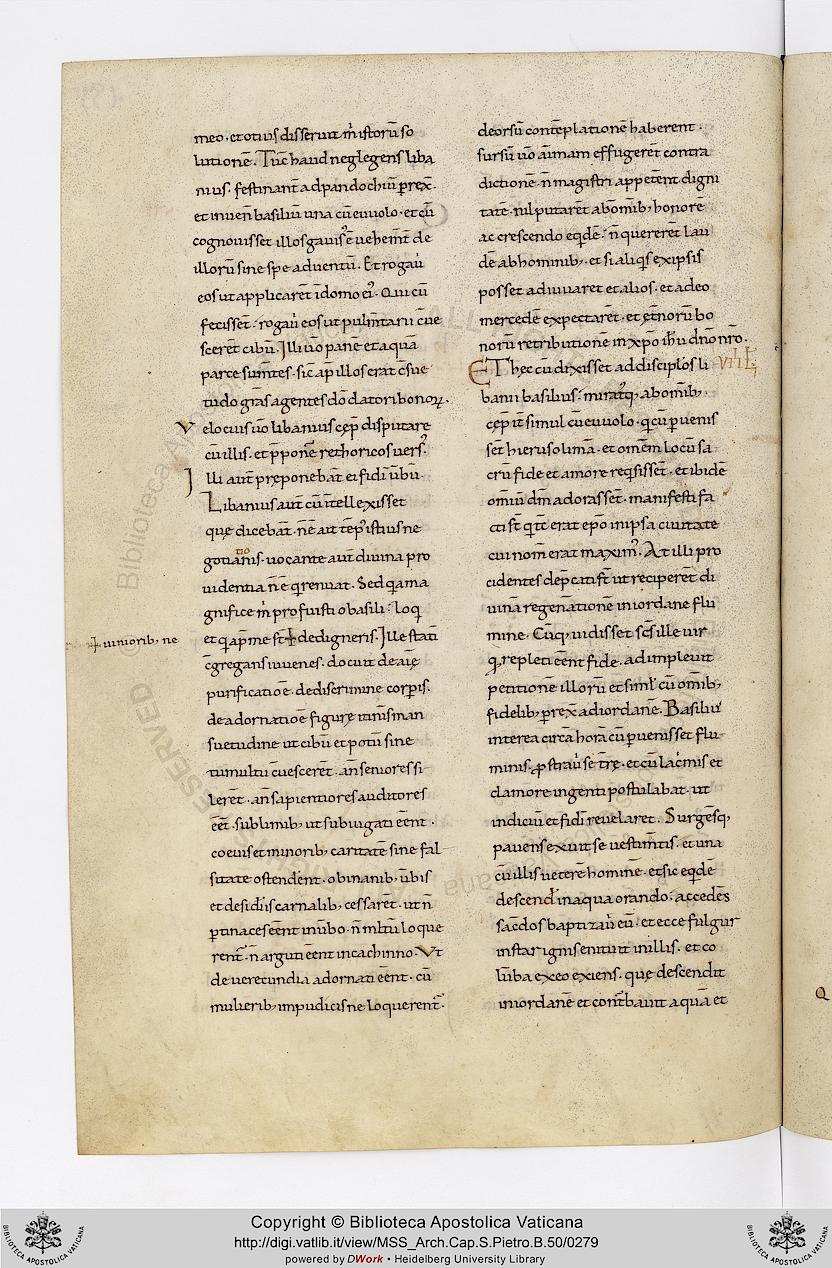 meo · et otius disseruit m̄ istorū so
lutionē . Tūc haud neglegens liba
nius · festinant̄ ad pandochiū p̄rex̄ ·
et inuen̄ basiliū una cū euuolo · et cū
cognouisset illos gauis᾽ ē uehem̄t̄ de
illorū sine spe aduentū . Et rogau᷑
eos ut applicarēt ī domo ei᾽ . Qui cū
fecissēt · rogau᷑ eos ut pulm̄tarii cū ue
scerēt cibū . Illi u᷑o panē et aquā
parte sum̄tes · sic ap̄ illos erat c̄sue
tudo gr̄as agentes dō datori bonoꝝ .
Velocius u᷑o libanius cep̄ disputare
cū illis · et p̄ponē rethoricos uers᾽
Illi aut̄ preponebāt ei fidī ūbū ·
Libanius aut̄ cū ītellexisset
quę dicebāt · nē aūt tēp᾽ istius ne
gotiatiōnis · uocante aut̄ diuina pro
uidentia nē ē q̇ renuat . Sed q̇a ma
gnifice m̄ profuisti o basili · loq̇
et q̇ ap̄ me st̄ ⸸ dedigneris . Ille stati
⸸ iuniorib; ne
c̄gregans iuuenes · docuit de aīę
purificatiōe · de discrimine corp̄is ·
de adornatiōe figurę itīnis man
suetudine ut cibū et potū sine
tumultu cū uescerēt · an̄ seniores si
lerēt · an̄ sapientiores auditores
eēt · sublimib; ut subiugati eēnt ·
coeuis et minorib; caritatē sine fal
sitate ostendēnt · ob inanib; ūbis
et desidiis carnalib; cessarēt · ut n̄
p̄tinaces eēnt in ūbo · n̄ mltū loque
rent̄ · n̄ arguti eēnt in cachinno . Ut
de uerecundia adornati eēnt · cū
mulierib; impudicis ne loquerent̄ .
deorsū contēplationē haberent ·
sursū u᷑o aīmam effugerēt contra
dictionē · n̄ magistri appetent digni
tatē · nil putarēt ab om̄ib; honorē
accrescendo eq̇dē · n̄ quererēt lau
dē ab hominib; · et si aliq̇s ex ipsis
posset adiuuaret et alios · et a deo
mercedē expectarēt · et ęt̄norū bo
norū retributionē in xp̄o ihū dn̄o nr̄o .
ET hęc cū dixisset ad discipłos li VIII L;
banii basilius · mirat᾽q; ab om̄ib; ·
cęp̄ it̄ simul cū euuolo · q̇ cū ꝑuenis
set hierusolima · et omēm locū sa
crū fide et amore req̇sisset · et ibidē
om̄iū dm̄ adorasset · manifesti fa
cti st̄ q̇ tc̄ erat ep̄o in ipsa ciuitate
cui nom̄ erat maxim᾽ . At illi pro
cidentes dep̄cati st̄ ut reciperēt di
uinā regenationē in iordane flu
mine . Cūq; uidisset sc̄s ille uir
q; repleti eēnt fide · adimpleuit
petitionē illorū et siml̄ cū om̄ib;
fidelib; p̄rex̄ ad iordanē . Basiliu᾽
interea circā horā cū ꝑuenisset flu
minis · ꝓstrau᷑ se t̄rę · et cū lac̄mis et
clamore ingenti postulabat · ut
indiciū et fidī reuelaret . Surgēsq;
pauens exuit se uestim̄tis · et una
cū illis ueterē hominē · et sic eq̇dē
descend̄ in aqua orando · accedēs
sac̄dos baptizau᷑ eū · et ecce fulgur
instar ignis enituit in illis · et co
lūba ex eo exiens · quę descendit
in iordanē et cont̄bauit aquā et
Q
Copyright © Biblioteca Apostolica Vaticana
http://digi.vatlib.it/view/MSS_Arch.Cap.S.Pietro.B.50/0279
powered by DWork • Heidelberg University Library
BIBLIOTECA APOSTOLICA VATICANA
BIBLIOTECA APOSTOLICA VATICANA